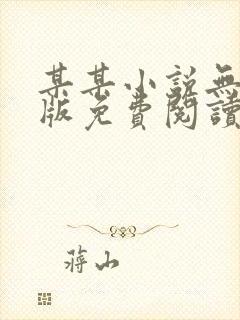 某某小説無
版免費閱讀
蔣山